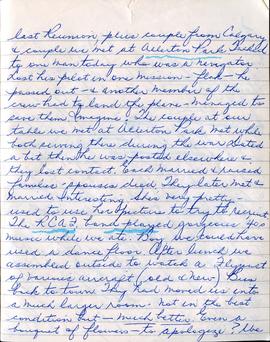 last Reunion plus couple from Calgary
& couple we met at Allerton Park. Talked
to one man today who was a navigator
lost his pilot in one mission - flak - he
passed out - & another member of the
crew had to land the plane - managed to
save them. Imagine! The couple at our
table we met at Allerton Park met while
both serving there during the war. Dated
a bit then he was posted elsewhere &
they lost contact. Each married & raised
families - spouses died. They later met &
married. Interesting. She's very pretty -
used to use her picture to try to recruit.
The RCAF band played gorgeous 40s
music while we ate. Boy we could have
used a dance floor. After lunch we
assembled outside to watch a flypast
of various aircraft (old & new). Bus
back to town. They had moved us into
a much larger room. Not in the best
condition but - much better. Even a
bouquet of flowers - to apologize? We